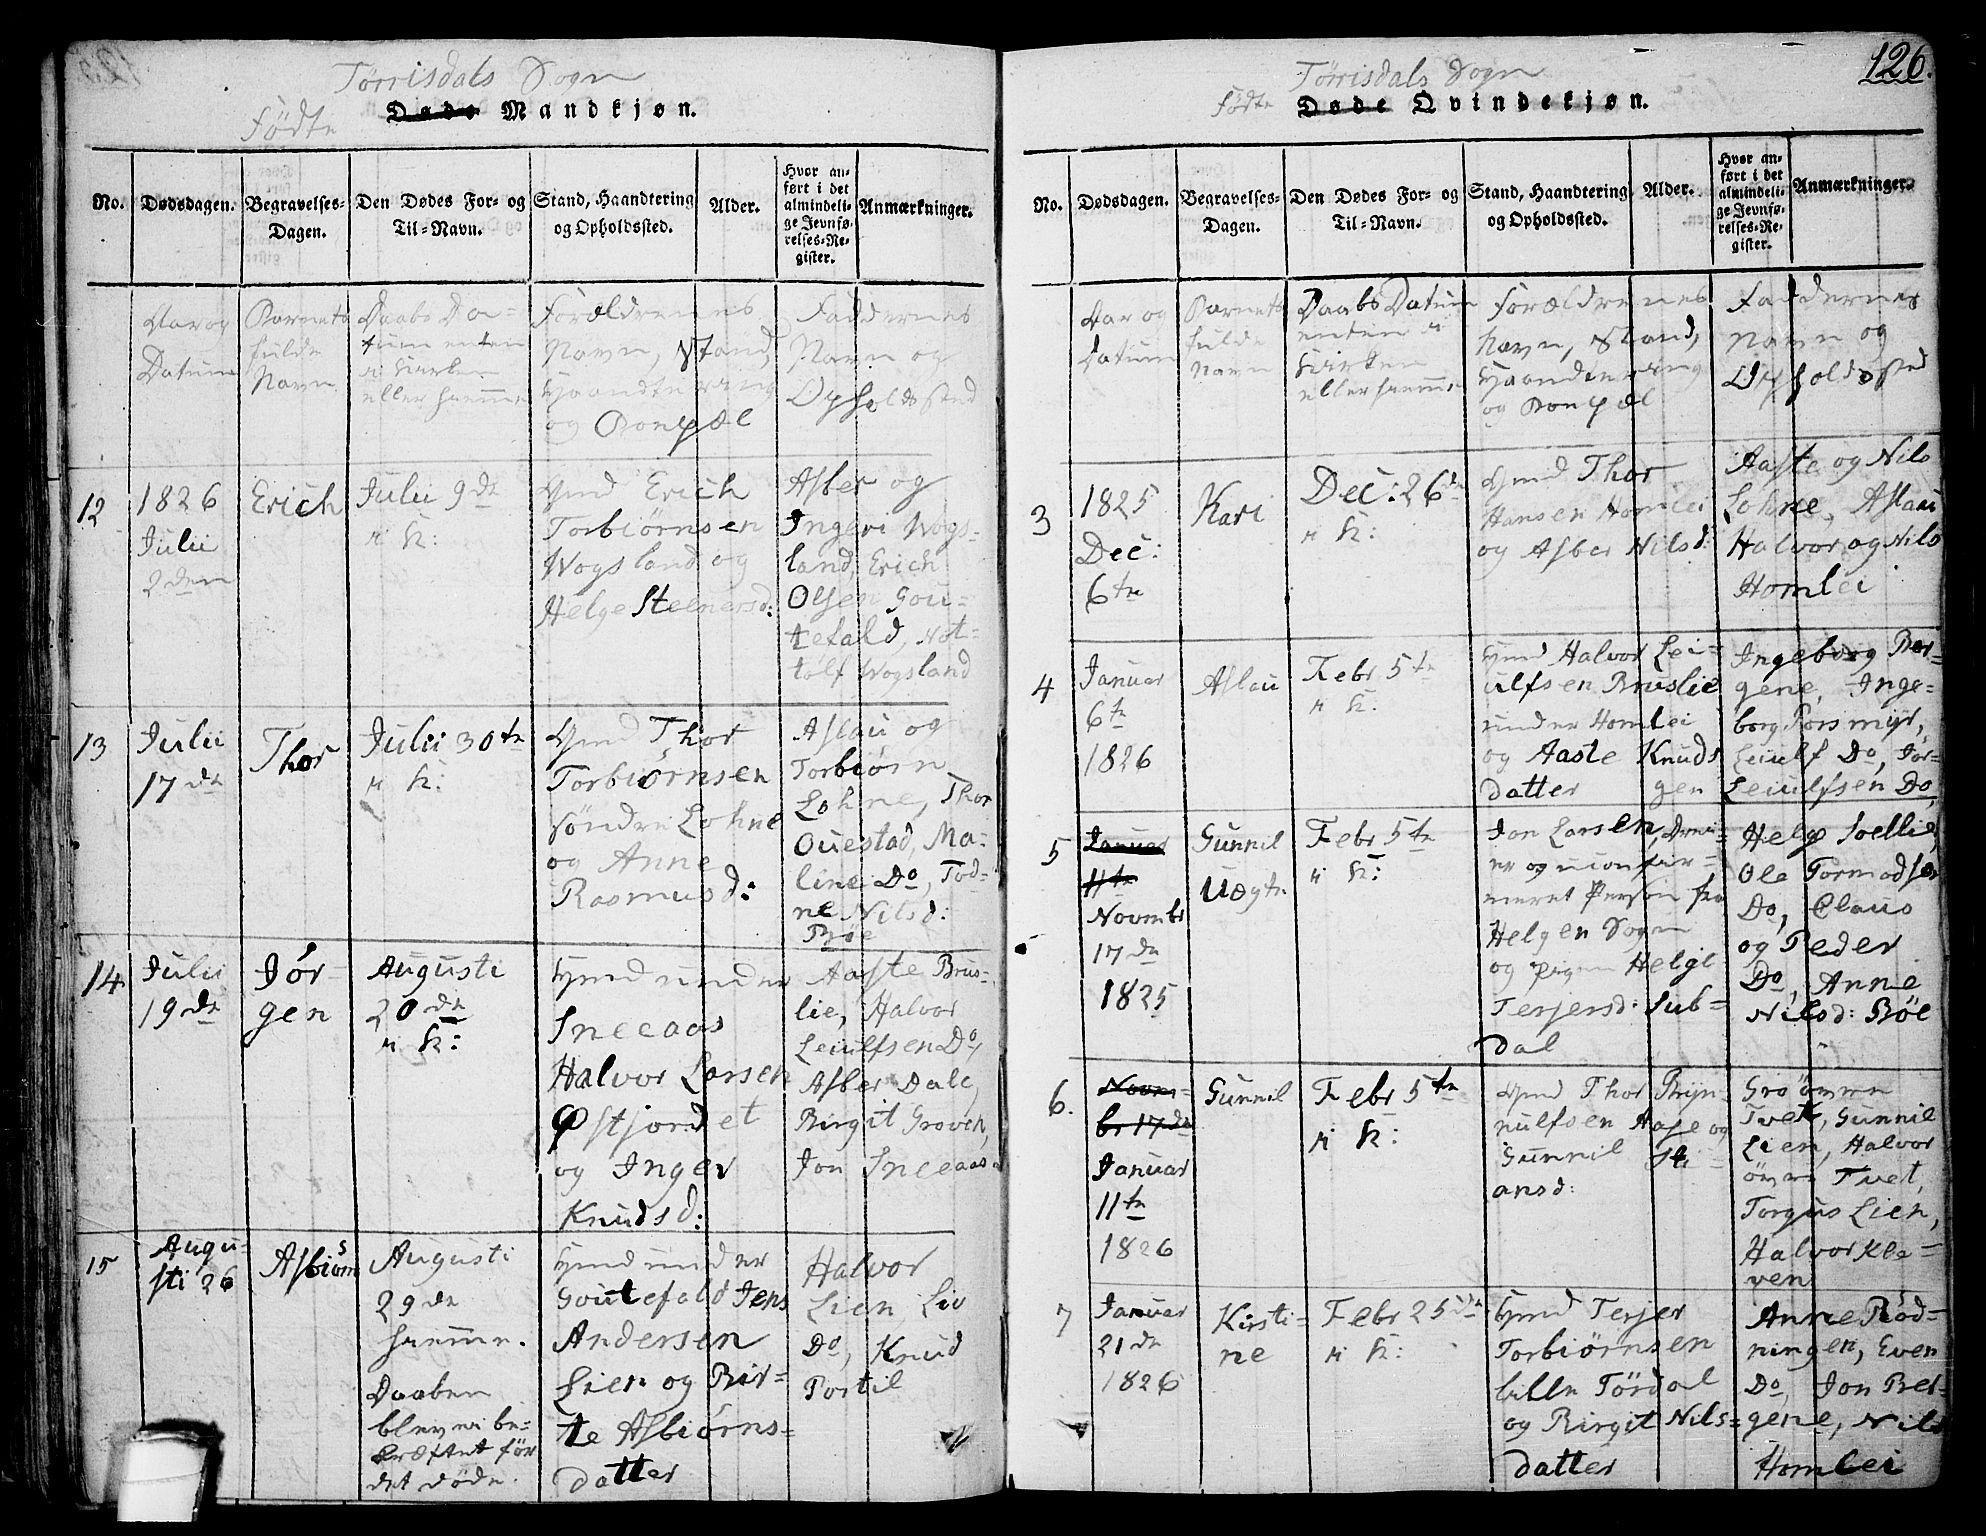 Tørrisdals Sogn
Fødte Døde Mandkjøn.
No.
Dødsdagen.
Begravelses-
Dagen.
Den Dødes For- og
Til-Navn.
Stand, Haandtering
og Opholdssted.
Alder.
Hvor an-
ført i det
almindeli-
ge Jevnfø-
relses-Re-
gister.
Anmærkninger.
Aar og
Datum
Barnets
fulde
Navn
Daabs Da-
tum enten
i Kirken
eller hiemme
Forældrenes
Navn, Stand,
Haandtering
og Bopæl
Faddernes
Navn og
Opholdsted
12
1826
Julii
2den
Erich
Julii 9de
i K:
Gmd Erich
Torbiørnsen
Wogsland og
Helge Steenersd:
Asber og
Ingeri Wogs-
land, Erich
Olsen Gou-
tefald, Not-
tolf Wogsland
13
Julii
17de
Thor
Julii 30te
i K:
Gmd Thor
Torbiørnsen
søndre Lohne
og Anne
Rasmusd:
Aslau og
Torbiørn
Lohne, Thor
Ouestad, Ma-
line Do, Tod-
ne Nilsd:
Bøe
14
Julii
19de
Jør-
gen
Augusti
20de
i K:
Hmd under
Sneeaas
Halvor Larsen
Østjordet
og Inger
Knudsd:
Aaste Brus-
lie, Halvor
Leiulfsen Do,
Asber Dale,
Birgit Groven,
Jon Sneeaas
15
Augu-
sti 26
Asbiørn
Augusti
29de
hiemme.
Daaben
blev ei be-
kræftet før
det døde.
Hmd under
Goutefald Jens
Andersen
Lien og Bir-
te Asbiørns-
datter
Halvor
Lien, Liv
Do, Knud
Portil
126.
Tørrisdals Sogn
Fødte Døde Qvindekjøn.
No.
Dødsdagen.
Begravelses-
Dagen.
Den Dødes For- og
Til-Navn.
Stand, Haandtering
og Opholdssted.
Alder.
Hvor an-
ført i det
almindeli-
ge Jevnfø-
relses-Re-
gister.
Anmærkninger.
Aar og
Datum
Barnets
fulde
Navn
Daabs Datum
enten i
Kirken
eller hiemme
Forældrenes
Navn, Stand,
Haandtering
og Bopæl
Faddernes
Navn og
Opholdssted
3
1825
Dec:
6te
Kari
Dec: 26de
i K:
Gmd Thor
Hansen Homlei
og Asber Nilsd:
Aaste og Nils
Lohne, Aslau
Halvor og Nils
Homlei
4
Januar
6te
1826
Aslau
Febr 5te
i K:
Hmd Halvor Lei-
ulfsen Bruslie
under Homlei
og Aaste Knuds
datter
Ingeborg Ber-
gene, Inge-
borg Porsmyr,
Leiulf Do, Jør-
gen Leiulfsen Do,
5
Januar
11te
Novmbr
17de
1825
Gunnil
Uægte
Febr 5te
i K:
Jon Larsen,
er og uconfir-
meret Person fra
Helgen Sogn
og pigen Helge
Terjersd: Sub-
dal
Helge Soellie,
Ole Tormodsen
Do, Claus
og Peder
Do, Anne
Nilsd: Bøe
6.
Novem-
br 17de
Januar
11te
1826
Gunnil
Febr 5te
i K:
Gmd Thor Bryn-
nulfsen Hage og
Gunnil Sti-
ansd:
Gro øvre
Tvet, Gunnil
Lien, Halvor
øvre Tvet,
Torgus Lien,
Halvor Kle-
ven
7
Januar
21de
1826
Kirsti-
ne
Febr 25de
i K:
Gmd Terjer
Torbiørnsen
lille Tørdal
og Birgit Nils-
datter
Anne Rød-
ningen, Even
Do, Jon Ber-
gene, Nils
Homlei